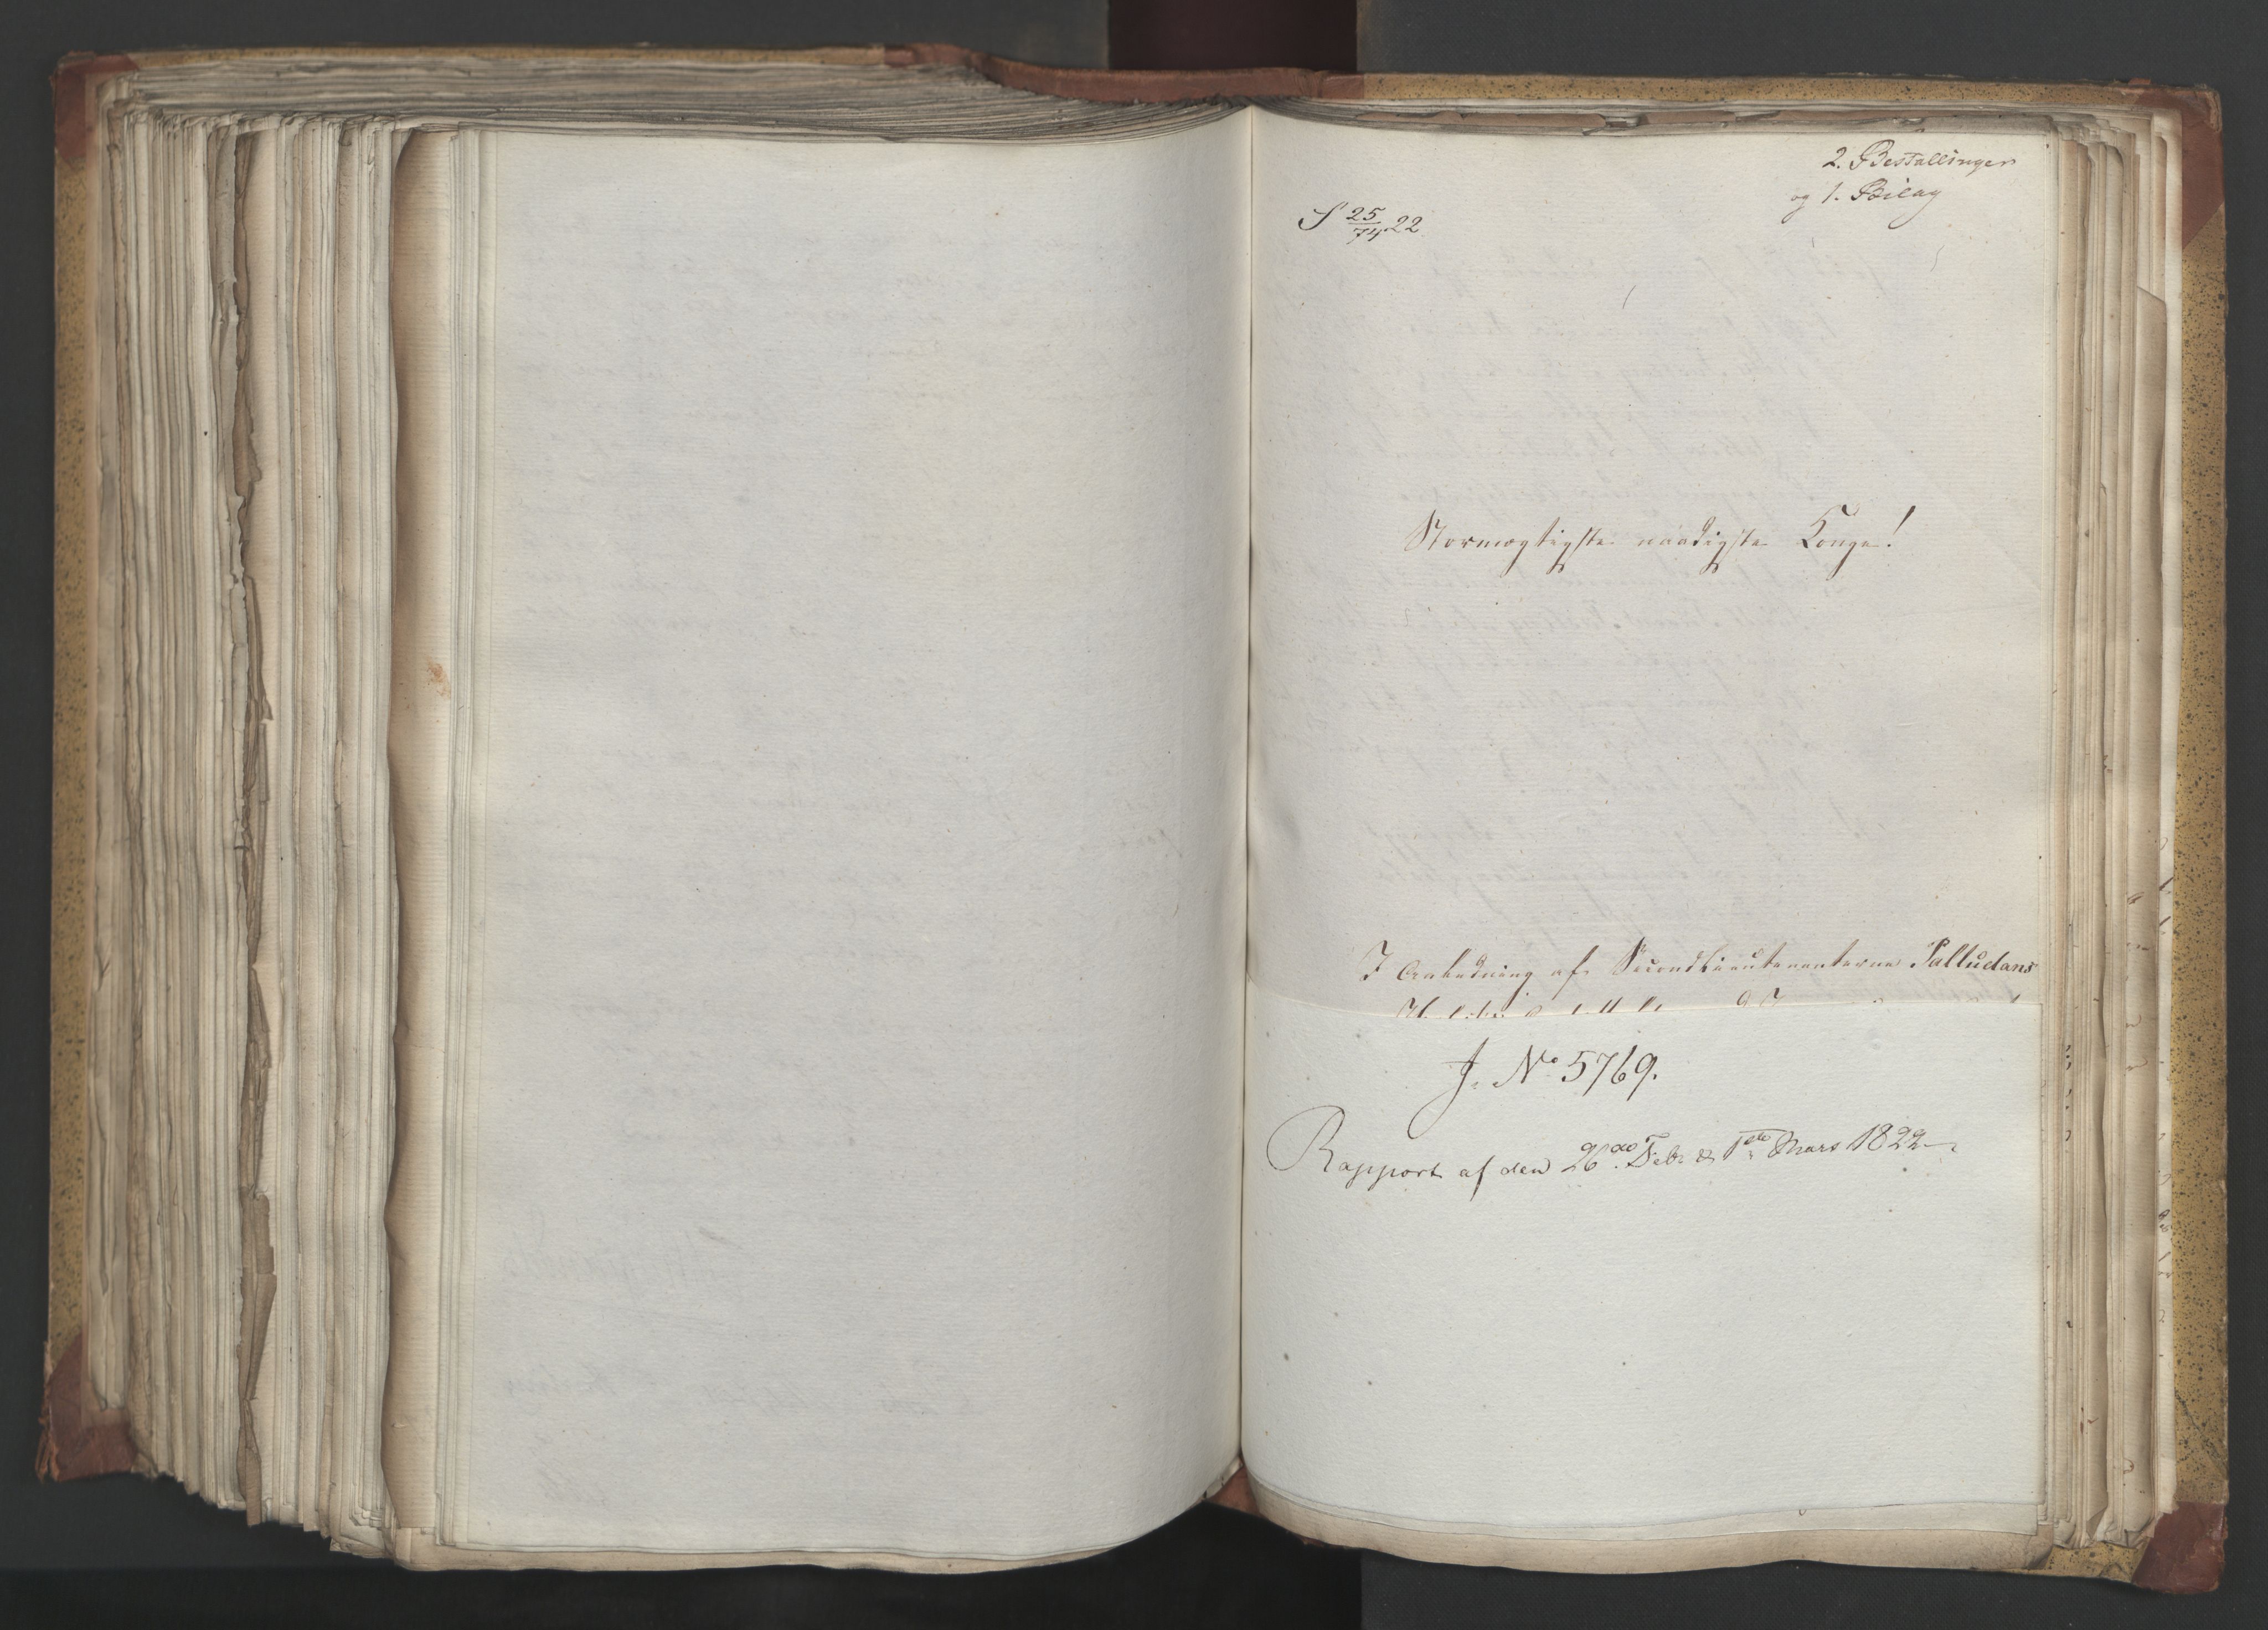 2. Bestallinger
og 1. Bilag
S 25/74 22
Stormægtigste naadigste Konge!
I Anledning af Secondlieutenanterne Palludans
J. No 5769.
Rapport af den 26de Feb: & 1ste Mars 1822